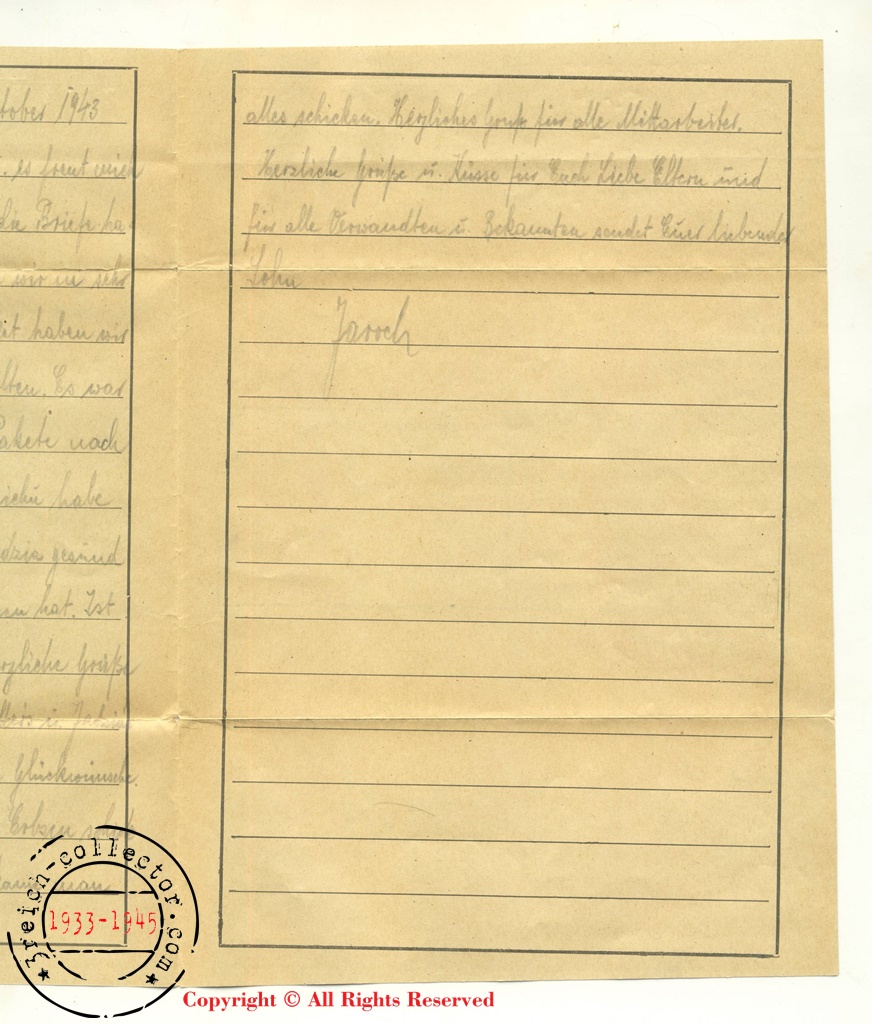 tober 1943
es freut mich
die Briefe ha-
wir in sehr
haben wir
lten. Es war
Pakete nach
habe
dzia gesund
en hat. Ist
rzliche Grüße
u.
Glückwünsche.
Erbsen
man
alles schicken. Herzliches Gruß für alle Mittarbeiter.
Herzliche Grüße u. Küsse für Euch Liebe Eltern und
für alle Verwandten u. Bekannten sendet Euer liebender
Sohn
Jaroch
3reich-collector.com
1933-1945
Copyright © All Rights Reserved